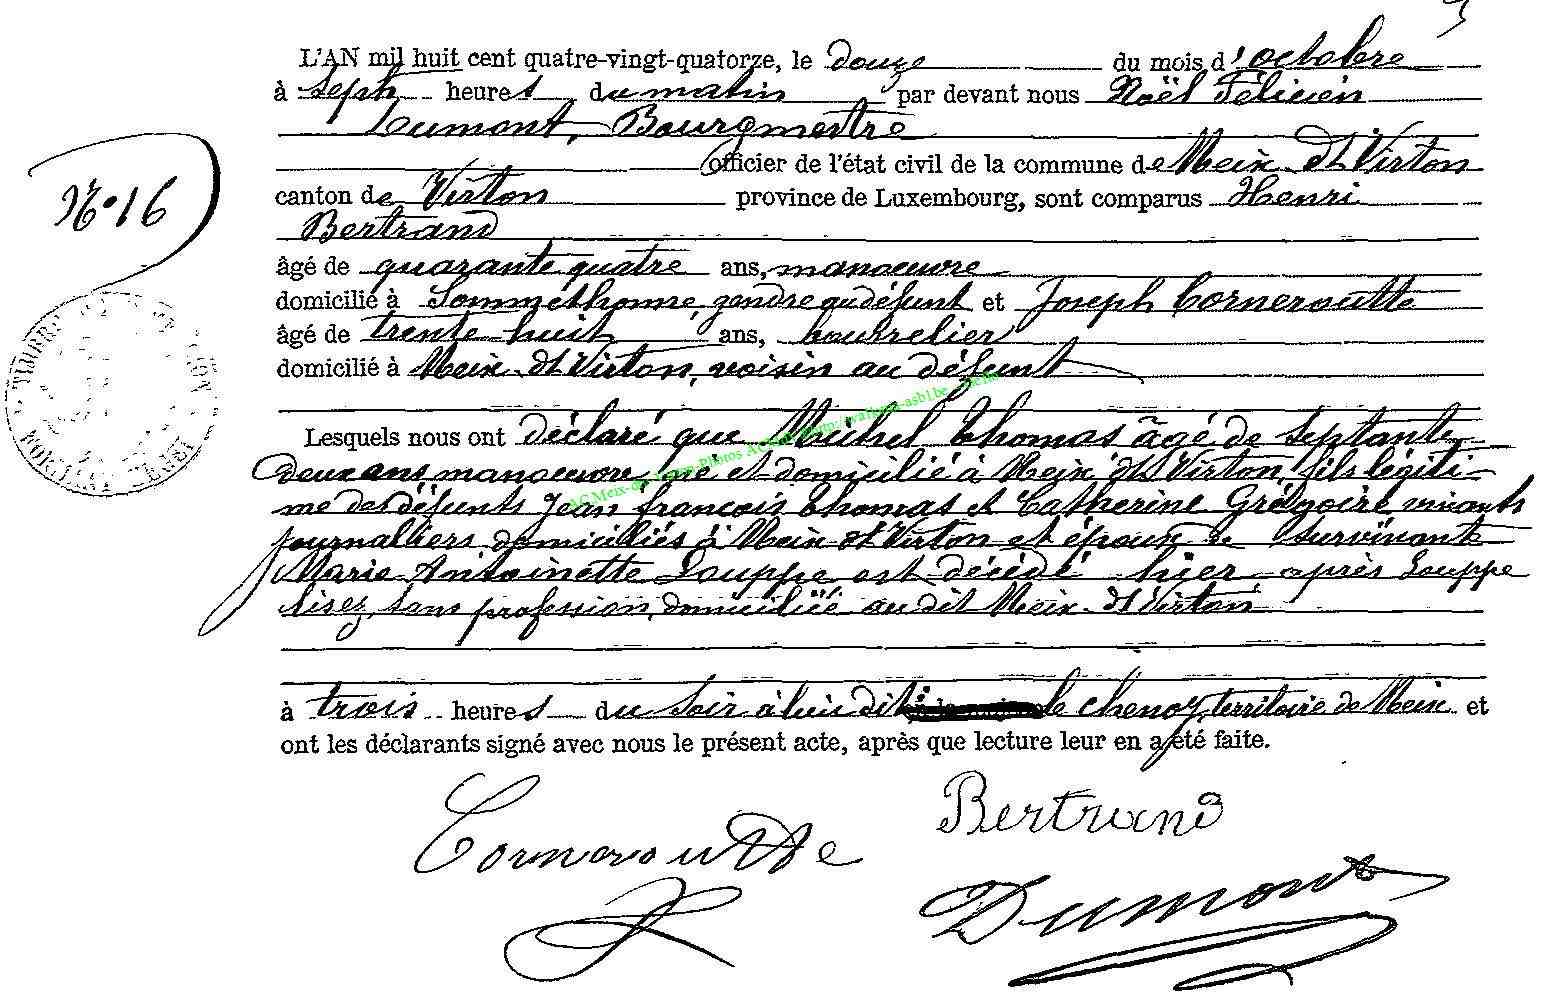 L'AN mil huit cent quatre-vingt-quatorze, le douze du mois d'octobre
à Sept heures du matin par devant nous Noël Félicien
Dumont, Bourgmestre
officier de l'état civil de la commune de Meix dt Virton
N° 16
canton de Virton province de Luxembourg, sont comparus Henri
Bertrand
âgé de quarante quatre ans, manoeuvre
domicilié à Sommethonne, gendre au défunt et Joseph Cornerotte
âgé de trente huit ans, bourrelier
domicilié à Meix dt Virton, voisin au défunt
Lesquels nous ont déclaré que Michel Thomas âgé de Septante
deux ans, manoeuvre né et domicilié à Meix dt Virton, fils légiti-
me des défunts Jean françois Thomas et Catherine Grégoire vivants
journaliers domiciliés à Meix dt Virton et époux de survivante
Marie Antoinette Louppe est décédé hier après Louppe
lisez, sans profession, domiciliée au dit Meix dt Virton
à trois heures du Soir à lieu dit le chenoy, territoire de Meix et
ont les déclarants signé avec nous le présent acte, après que lecture leur en a été faite.
Cornerotte Bertrand
Dumont